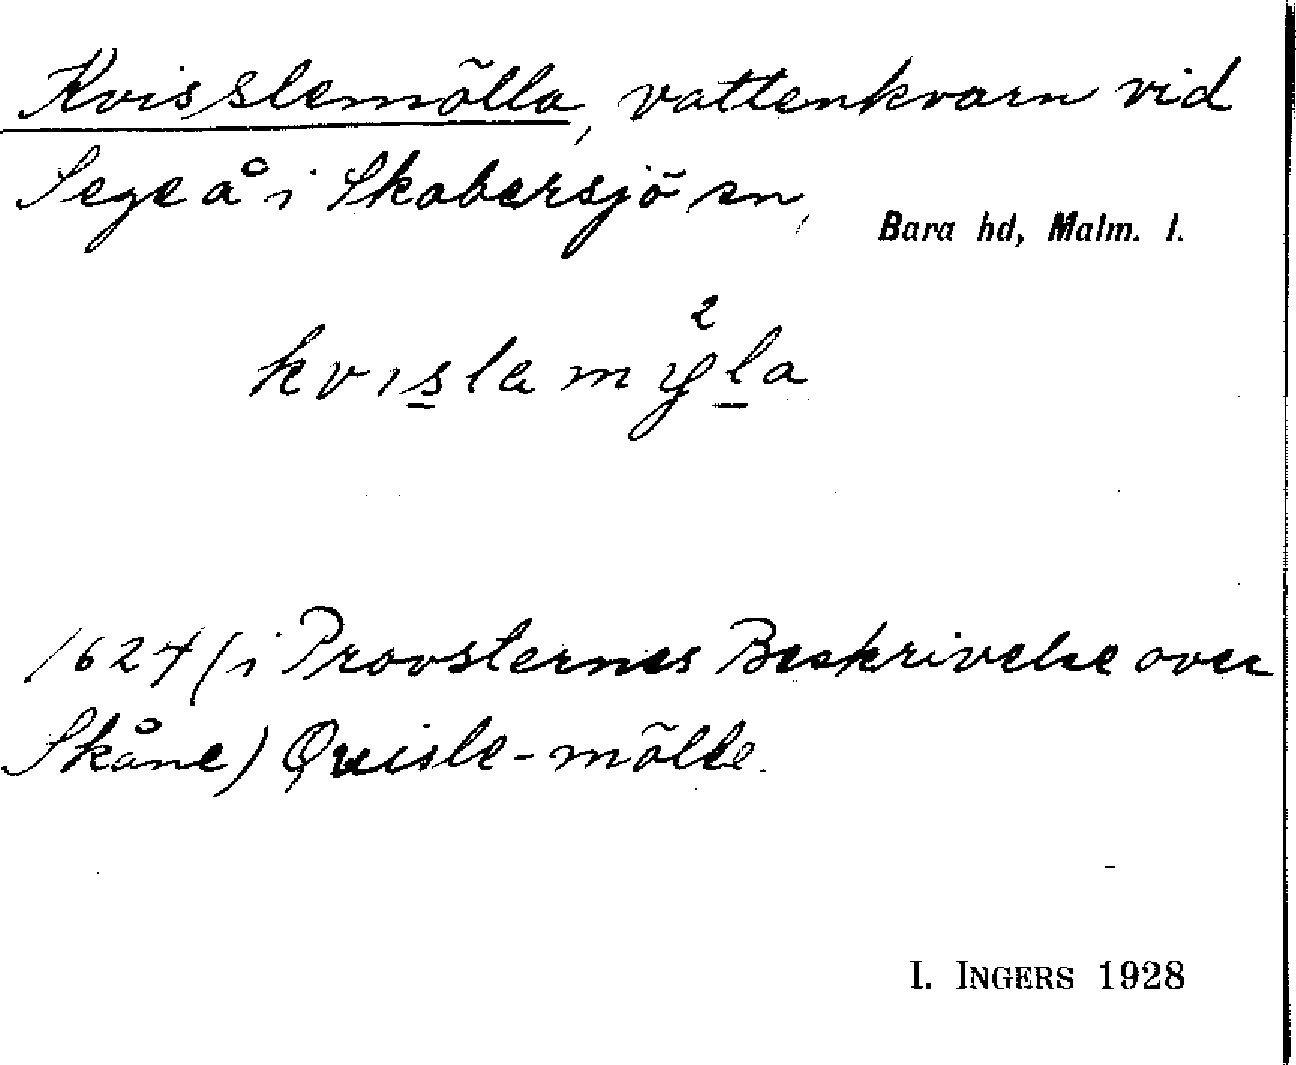 Kvisslemölla, vattenkvarn vid
Sege å i Skabersjö sn,
Bara hd, Malm. l.
kvıs̲lamẙ²l̲a
1624 (i Provsternes Beskrivelse over
Skåne) Quisle-mölle.
I. INGERS 1928